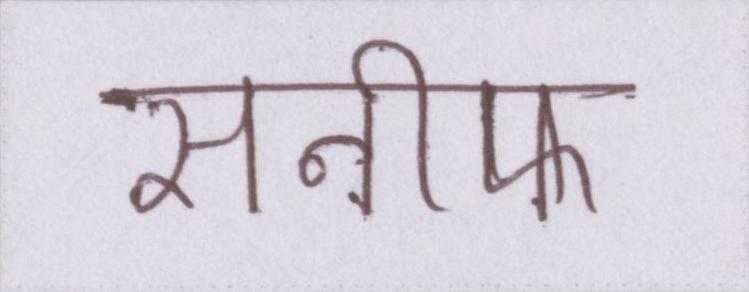 सनीफ